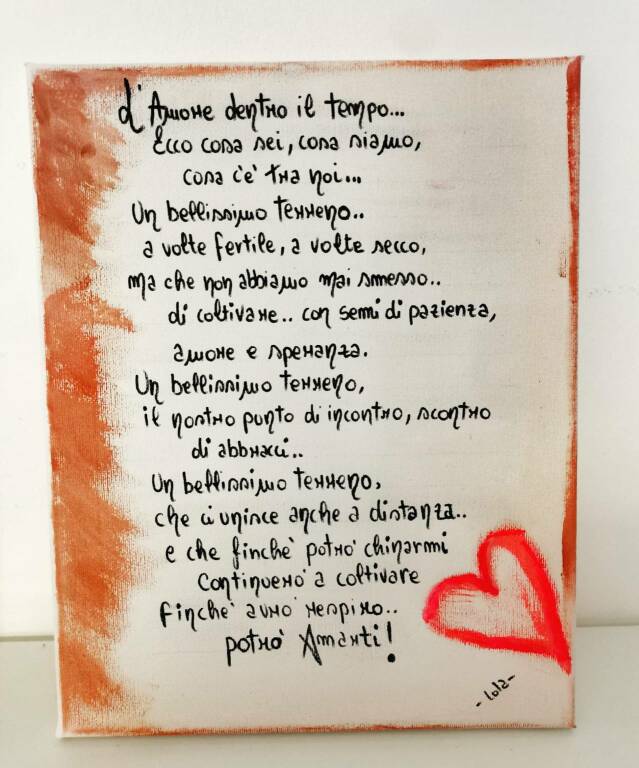 d'Amore dentro il tempo...
Ecco cosa sei, cosa siamo,
cosa c'e' tra noi...
Un bellissimo terreno..
a volte fertile, a volte secco,
ma che non abbiamo mai smesso..
di coltivare.. con semi di pazienza,
amore e speranza.
Un bellissimo terreno,
il nostro punto di incontro, scontro
di abbracci..
Un bellissimo terreno,
che ci unisce anche a distanza..
e che finchè potrò chinarmi
Continuerò a coltivare
finchè avrò respiro..
potrò Amarti!
-lola-